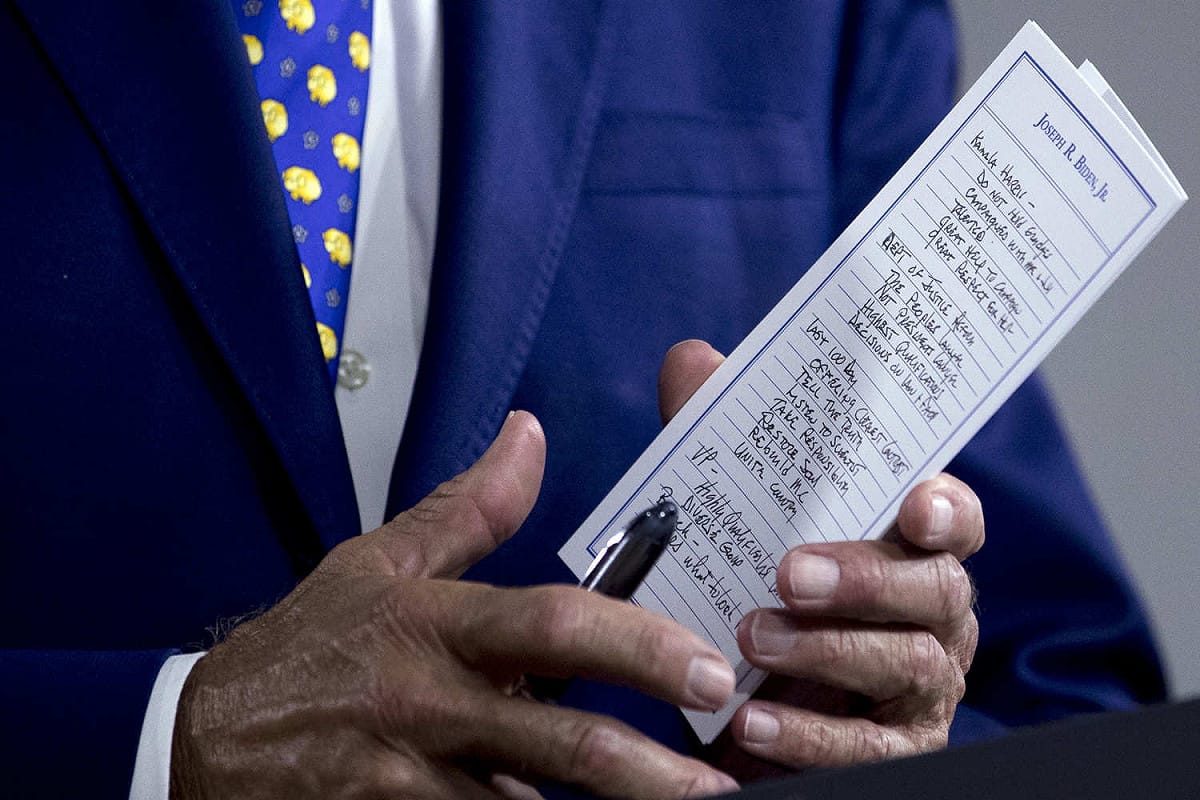 JOSEPH R. BIDEN, JR.
KAMALA HARRIS -
DO NOT HOLD GRUDGES
CAMPAIGNED WITH ME & JILL
TALENTED
GREAT HELP TO CAMPAIGN
GREAT RESPECT FOR HER
DEPT OF JUSTICE REFORM
THE PEOPLES LAWYER
NOT PRESIDENTS LAWYER
HIGHEST QUALIFICATIONS
DECISIONS ON LAW & FACT
LAST 100 DAY
OFFERING CLEAREST CONTRAST
TELL THE TRUTH
LISTEN TO SCIENTIST
TAKE RESPONSIBILITY
RESTORE SOUL
REBUILD M.C
UNITE COUNTRY
VP -
Highly Qualified
DIVERSE GROUP
what to look